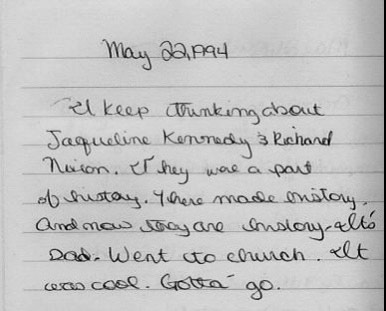 May 22, 1994
I keep thinking about
Jaqueline Kennedy & Richard
Nixon. They was a part
of history. There made history.
And now they are history. It's
Dad. Went to church. It
was cool. Gotta go.